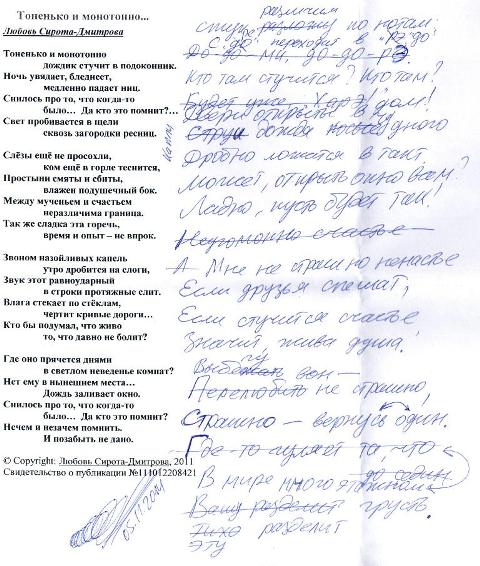 Тоненько и монотонно...
Любовь Сирота-Дмитрова
Тоненько и монотонно
дождик стучит в подоконник.
Ночь увядает, бледнеет,
медленно падает ниц.
Снилось про то, что когда-то
было… Да кто это помнит?…
Свет пробивается в щели
сквозь загородки ресниц.
Слёзы ещё не просохли,
ком ещё в горле теснится,
Простыни смяты и сбиты,
влажен подушечный бок.
Между мученьем и счастьем
неразличима граница.
Так же сладка эта горечь,
время и опыт – не впрок.
Звоном назойливых капель
утро дробится на слоги,
Звук этот равноударный
в строки протяжные слит.
Влага стекает по стёклам,
чертит кривые дороги…
Кто бы подумал, что живо
то, что давно не болит?
Где оно прячется днями
в светлом неведенье комнат?
Нет ему в нынешнем места…
Дождь заливает окно.
Снилось про то, что когда-то
было… Да кто это помнит?
Нечем и незачем помнить.
И позабыть не дано.
© Copyright: Любовь Сирота-Дмитрова, 2011
Свидетельство о публикации №111012208421
05.11.2014
различим
разложу по нотам:
С "до" переходят в "Рэ" до
До-до-ми, до-до-рэ.
Кто там стучится? Кто там?
Будет уже
Двери открыты в дом!
капли
Струи дождя
Дробно ложатся в такт
Может, открыть окно всем?
Ладно, пусть будет так!
счастье
А Мне не страшно ненастье
Если друзья спешат,
Если стучится счастье
Значит, жива душа!
Выбегу вон –
Перелюбить не страшно,
Страшно – вернусь один.
Где-то гуляет та, что
В мире много
до один
Вашу разделит грусть.
Тихо разделит
эту